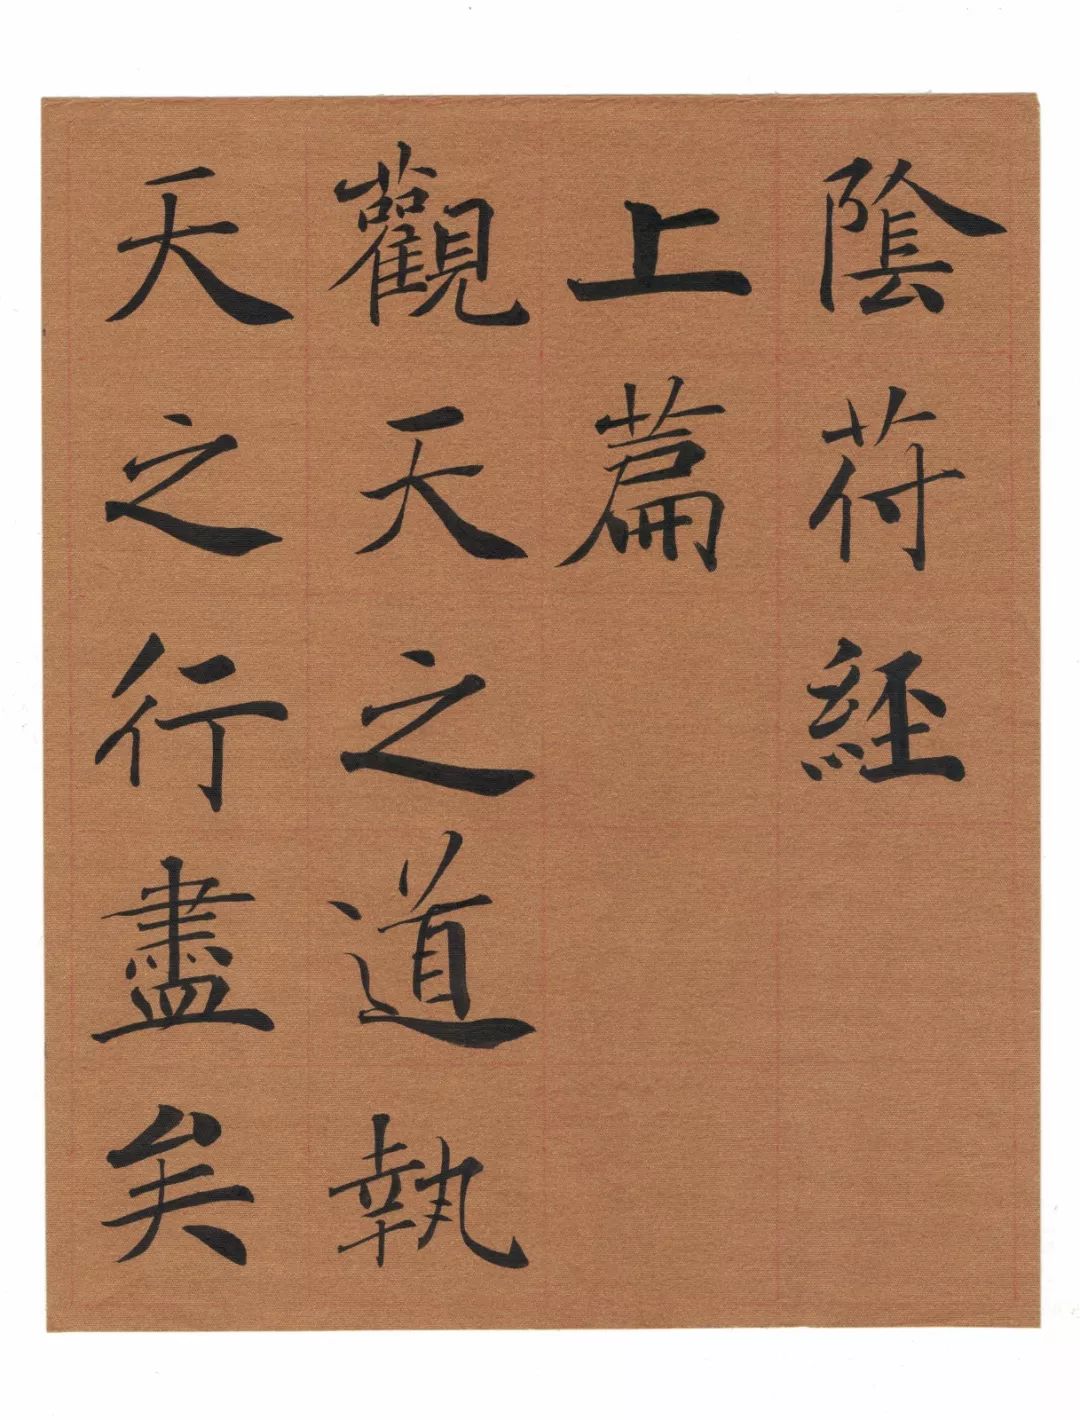 陰苻經
上篇
觀天之道執
天之行盡矣